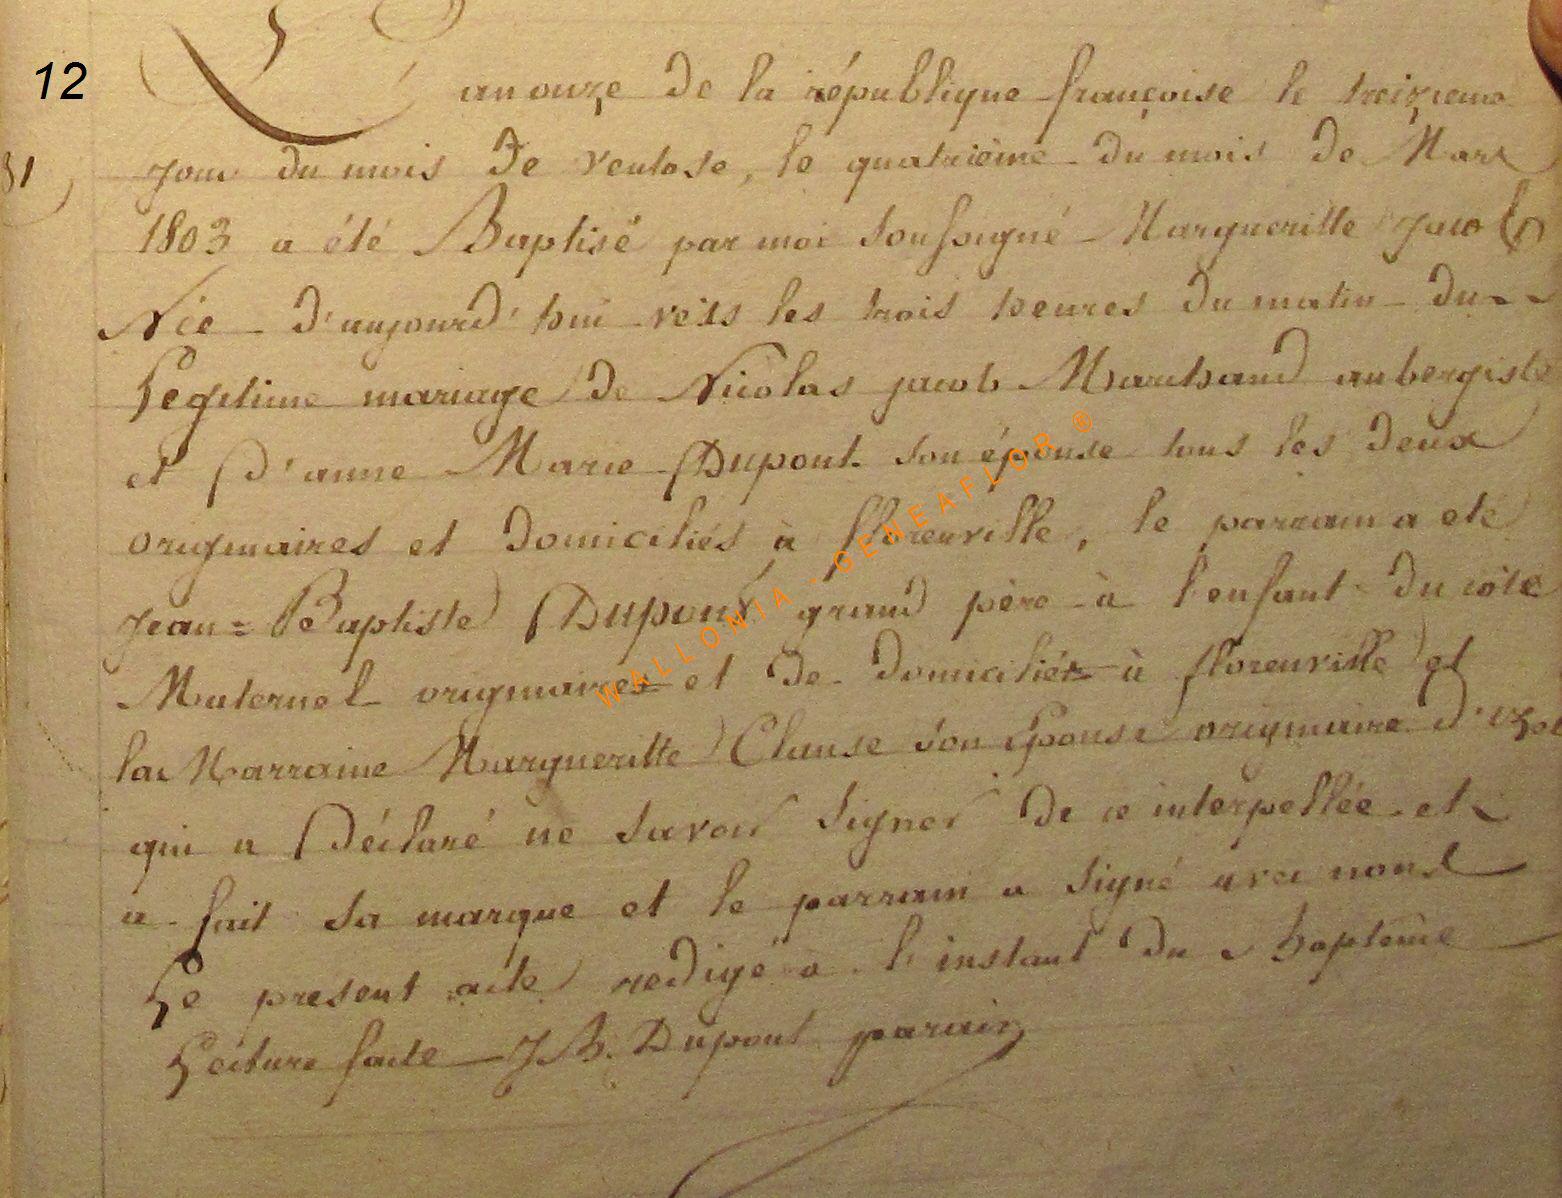 12
L'an onze de la république françoise le treizieme
31
jour du mois de ventose, le quatrième du mois de Mars
1803 a été Baptisé par moi soussigné Margueritte Jacob
Née d'aujourd'hui vers les trois heures du matin du
Legitime mariage de Nicolas jacob Marchand aubergiste
et d'anne Marie Dupont son épouse tous les deux
originaires et domiciliés à florenville, le parrain a eté
Jean= Baptiste Dupont grand père à l'enfant du côte
Maternel originaire et de domicilié à florenville et
la Marraine Margueritte Clause son Epouse originaire d'izel
qui a déclaré ne savoir signer de ce interpellée et
a fait sa marque et le parrain a signé avec nous
Le présent acte redigé a l'instant du baptême
Lecture faite J B. Dupont parain
WALLONIA - GENEAFLOR ®